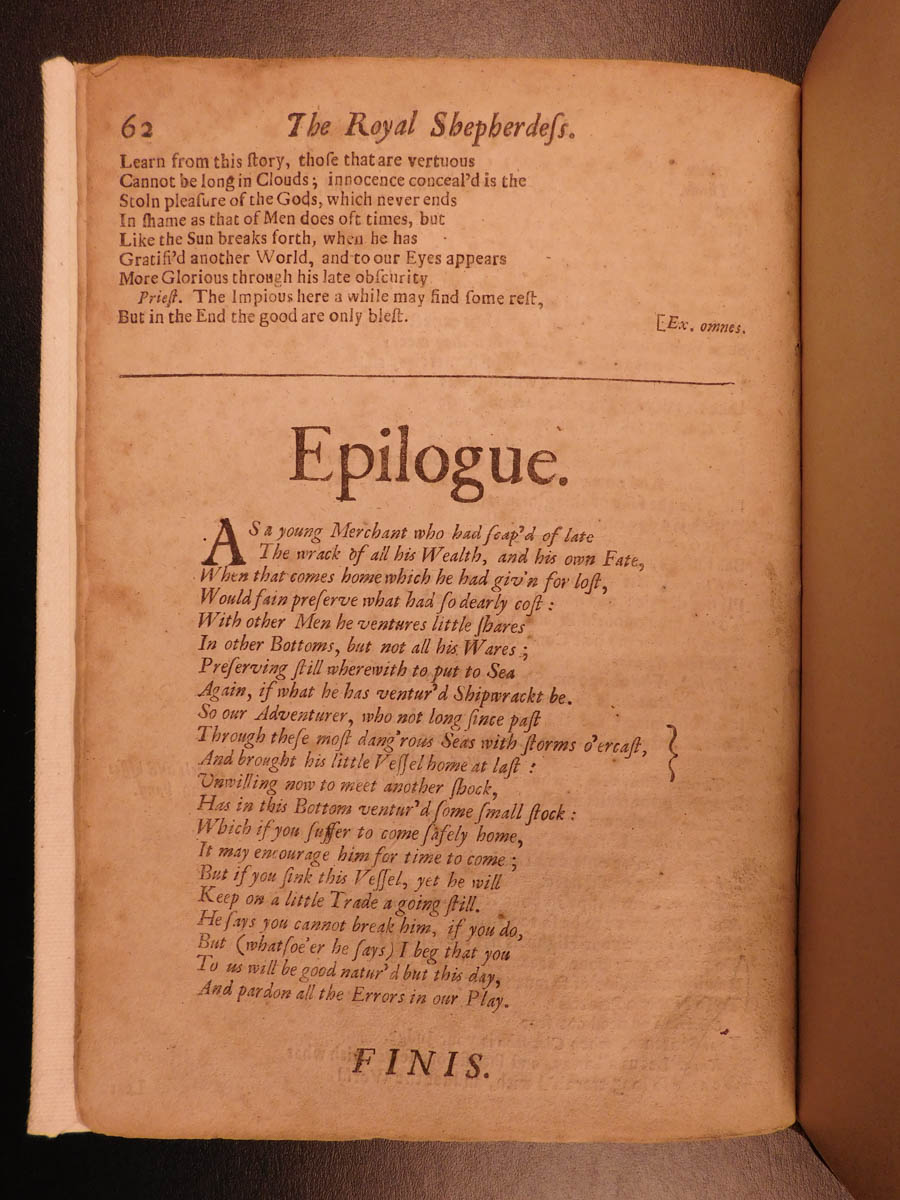 62 The Royal Shepherdeſs.
Learn from this ſtory, thoſe that are vertuous
Cannot be long in Clouds; innocence conceal'd is the
Stoln pleaſure of the Gods, which never ends
In ſhame as that of Men does oft times, but
Like the Sun breaks forth, when he has
Gratifi'd another World, and to our Eyes appears
More Glorious through his late obſcurity
Prieſt. The Impious here a while may find ſome reſt,
But in the End the good are only bleſt.
[Ex. omnes.
Epilogue.
AS a young Merchant who had ſcap'd of late
The wrack of all his Wealth, and his own Fate,
When that comes home which he had giv'n for loſt,
Would fain preſerve what had ſo dearly coſt:
With other Men he ventures little ſhares
In other Bottoms, but not all his Wares;
Preſerving ſtill wherewith to put to Sea
Again, if what he has ventur'd Shipwrackt be.
So our Adventurer, who not long ſince paſt
Through theſe moſt dang'rous Seas with ſtorms o'ercaſt,
And brought his little Veſſel home at laſt:
Unwilling now to meet another ſhock,
Has in this Bottom ventur'd ſome ſmall ſtock:
Which if you ſuffer to come ſafely home,
It may encourage him for time to come;
But if you ſink this Veſſel, yet he will
Keep on a little Trade a going ſtill.
He ſays you cannot break him, if you do,
But (whatſoe'er he ſays) I beg that you
To us will be good natur'd but this day,
And pardon all the Errors in our Play.
FINIS.